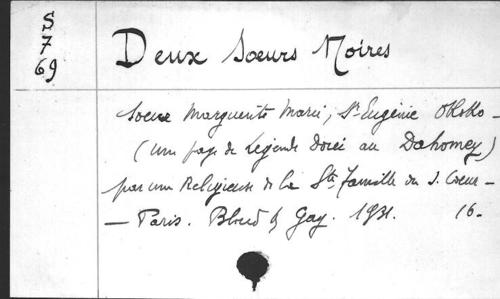 S
7
69
Deux Soeurs Noires
Soeur Marguerite Marie, Sr Eugénie Okoko -
(une page de Légende dorée au Dahomey)
par une Religieuse de la Ste Famille du S. Coeur -
- Paris. Bloud & Gay. 1931. 16.